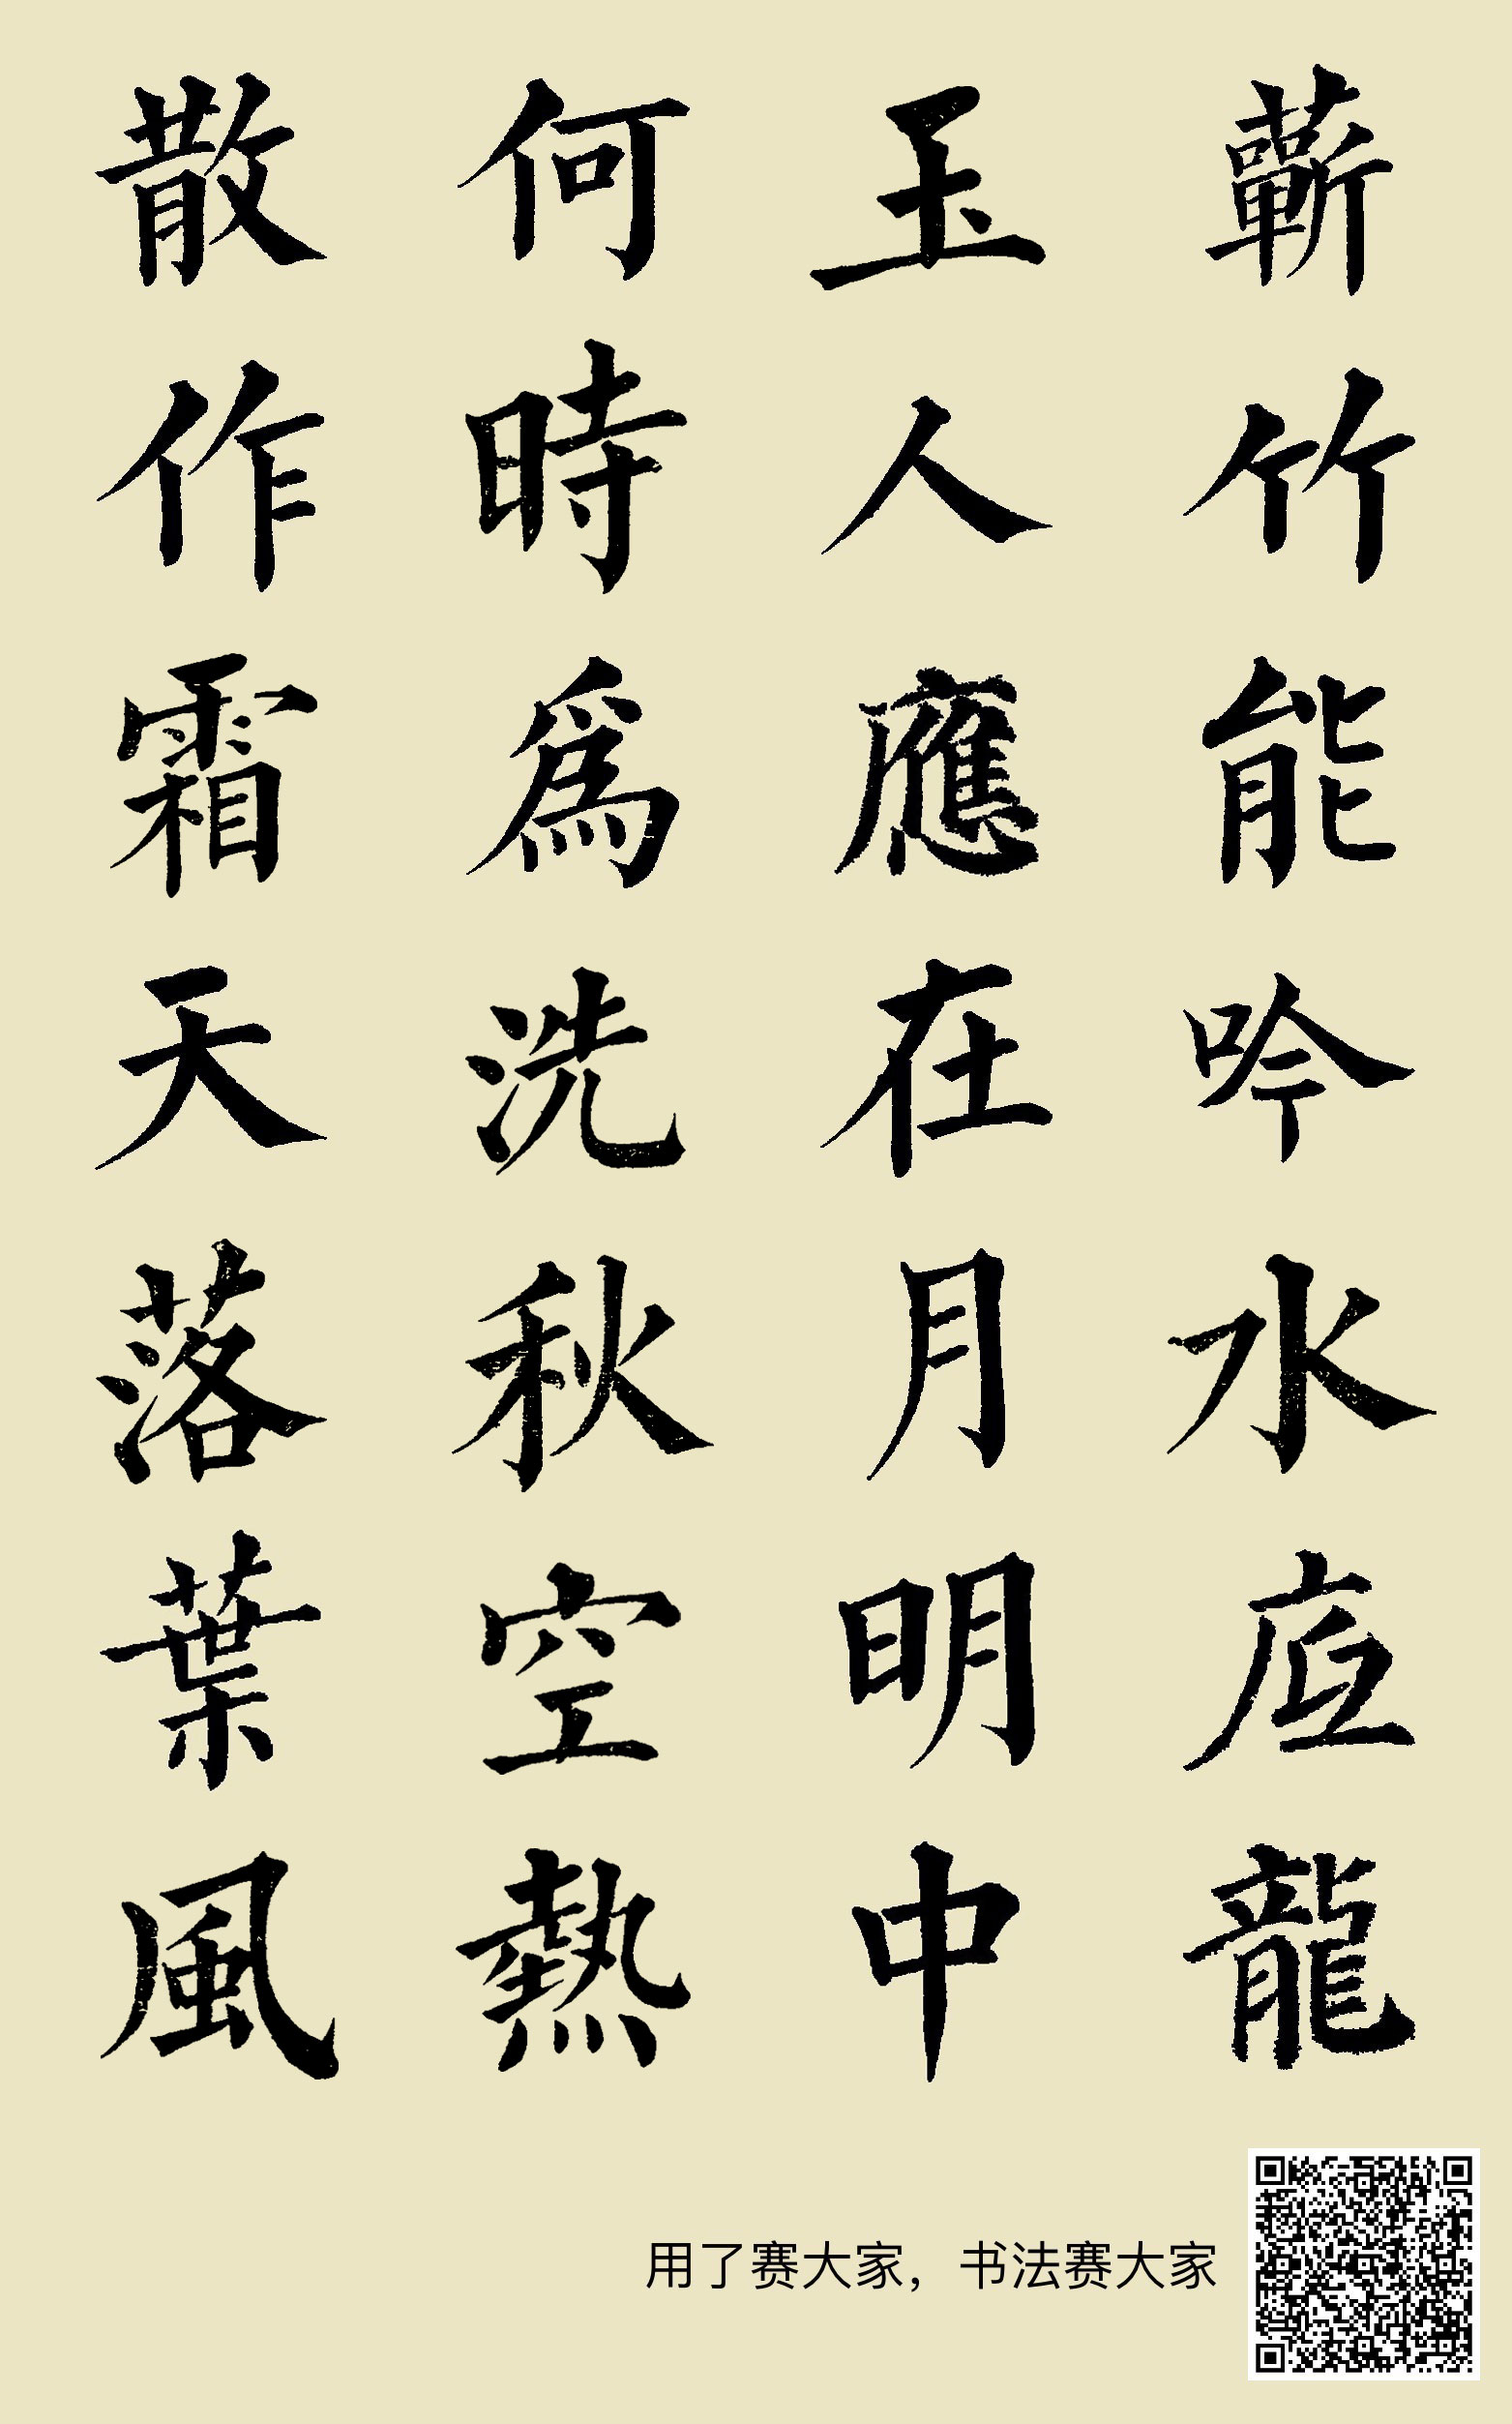 蘄竹能吟水底龍
玉人應在月明中
何時爲洗秋空熱
散作霜天落葉風
用了赛大家，书法赛大家